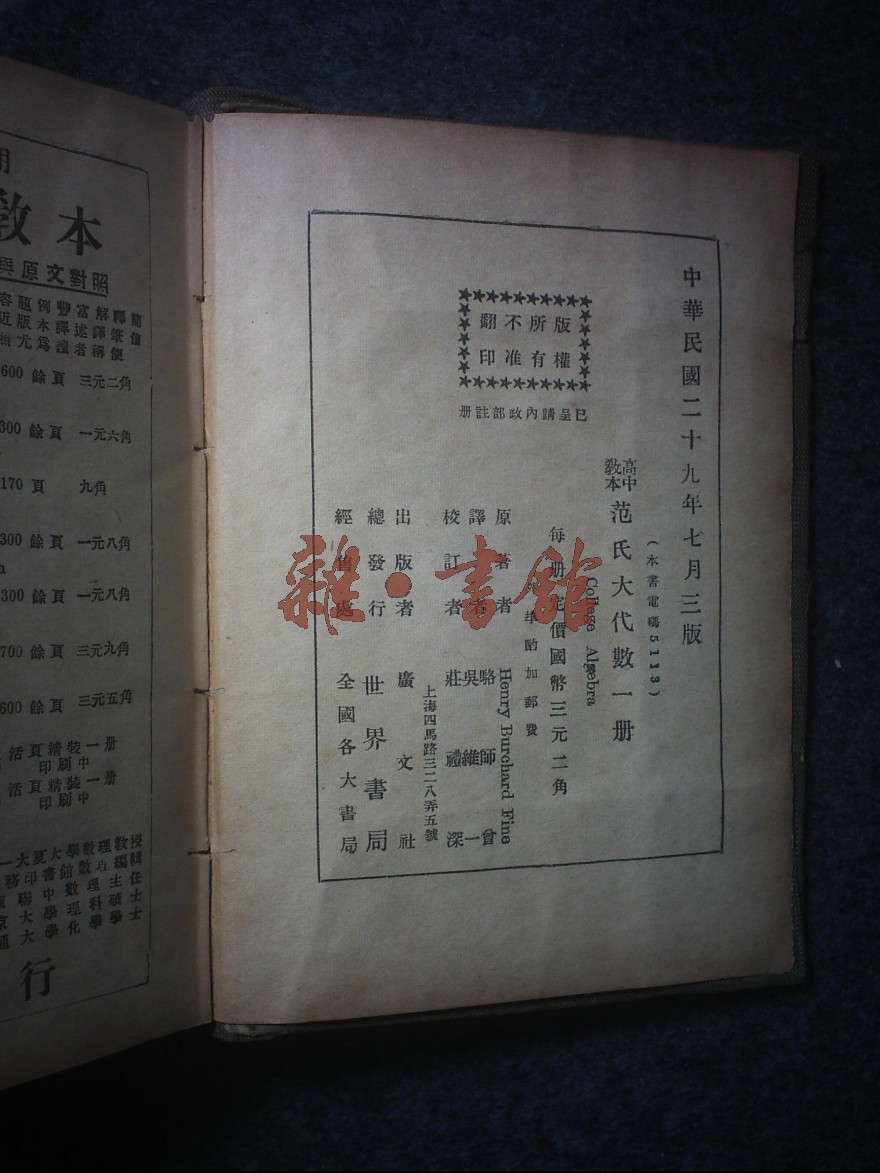 中華民國二十九年七月三版
(本書電碼5113)
高中
教本
范氏大代數一册
College Algebra
每册定價國幣三元二角
酌加郵費
原著者 Henry Burchard Fine
譯者 駱師曾
吳維一
校訂者 莊禮深
出版者 廣文社
上海四馬路三二八弄五號
總發行 世界書局
經售處 全國各大書局
版權
所有
不准
翻印
已呈請內政部註册
雜·書館
教本
與原文對照
容題例豐富解釋簡
近版本譯述譯筆信
尤為讀者稱便
600 餘頁 三元二角
300 餘頁 一元六角
170 頁 九角
300 餘頁 一元八角
300 餘頁 一元八角
700 餘頁 三元九角
600 餘頁 三元五角
活頁精裝一册
印刷中
活頁精裝一册
印刷中
大夏大學數理教授
務印書館數理編輯
聯中數理主任
大學理科碩士
通大學化學學士
行